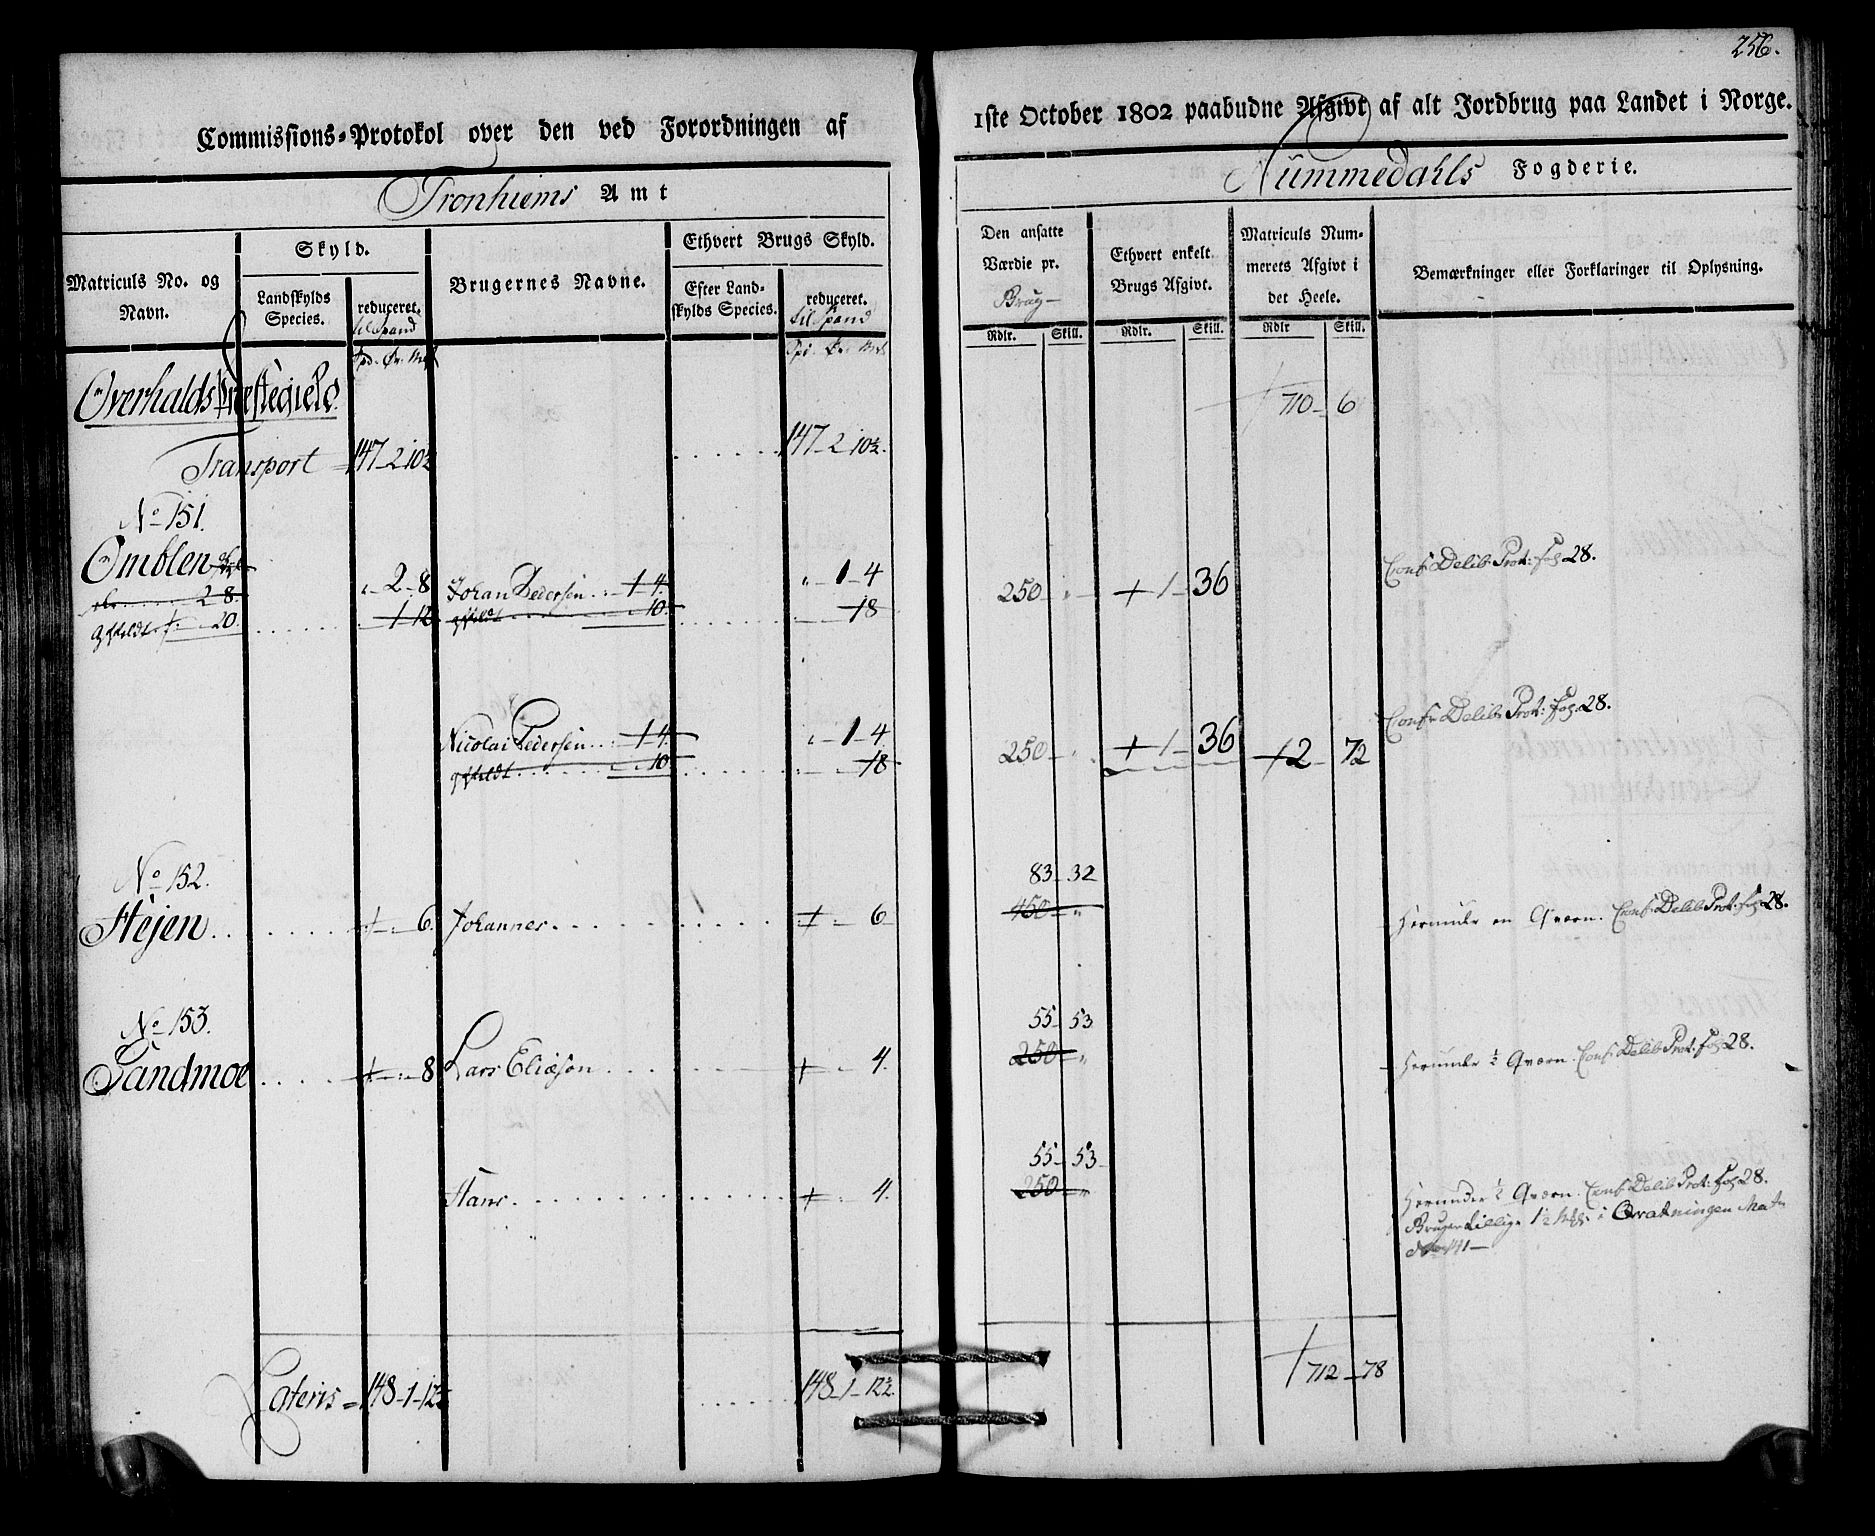 256.
Commissions-Protokol over den ved Forordningen af
1ste October 1802 paabudne Afgivt af alt Jordbrug paa Landet i Norge.
Tronhiems Amt
Nummedahls Fogderie.
Matriculs No. og Navn.
Skyld.
Landskylds Species.
reduceret.
til Spand
Brugernes Navne.
Ethvert Brugs Skyld.
Efter Landskylds Species.
reduceret.
til Spand
Den ansatte Værdie pr. Brug
Rdlr. Skill.
Ethvert enkelt Brugs Afgivt.
Rdlr. Skill.
Matriculs Nummerets Afgivt i det Heele.
Rdlr Skill.
Bemærkninger eller Forklaringer til Oplysning.
Overhalds Præstegield
710 - 6
Transport = 147-2-10½ 147-2-10½.
No 151.
Omblen
2-8.
20.
„-2-8
1-12
Johan Pedersen 1-4.
10.
„-1-4
18
250 - „ 1-36
Conf: Delib: Prot: fol 28.
Nicolai Pedersen 1-4.
10
„-1-4
18
250 - „ 1-36 2-72
Conf: Delib: Prot: fol. 28.
No 152.
83-32
Hejen 6. Johannes 6 450-„
Herunder en Qværn. Conf: Delib: Prot: fol 28.
No 153.
55-53
Sandmoe 8 Lars Eliæson 4. 250-„
Herunder ½ Qværn. Conf: Delib: Prot: fol 28.
55-53
Hans 4. 250-„
Herunder ½ Qværn. Conf: Delib: Prot: fol 28.
Bruger tillige 1½ i Mat
No 141
Lateris = 148-1-12½ 148-1-12½. 712-78